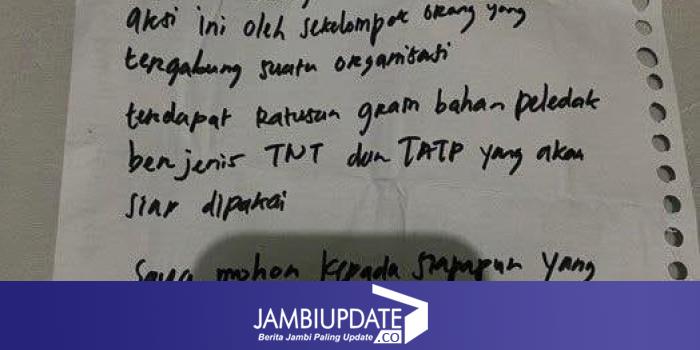 aksi ini oleh sekelompok orang yang
tergabung suatu organisasi
terdapat ratusan gram bahan peledak
berjenis TNT dan TATP yang akan
siap dipakai
Saya mohon kepada siapapun yang
JAMBIUPDATE
.CO
Berita Jambi Paling Update